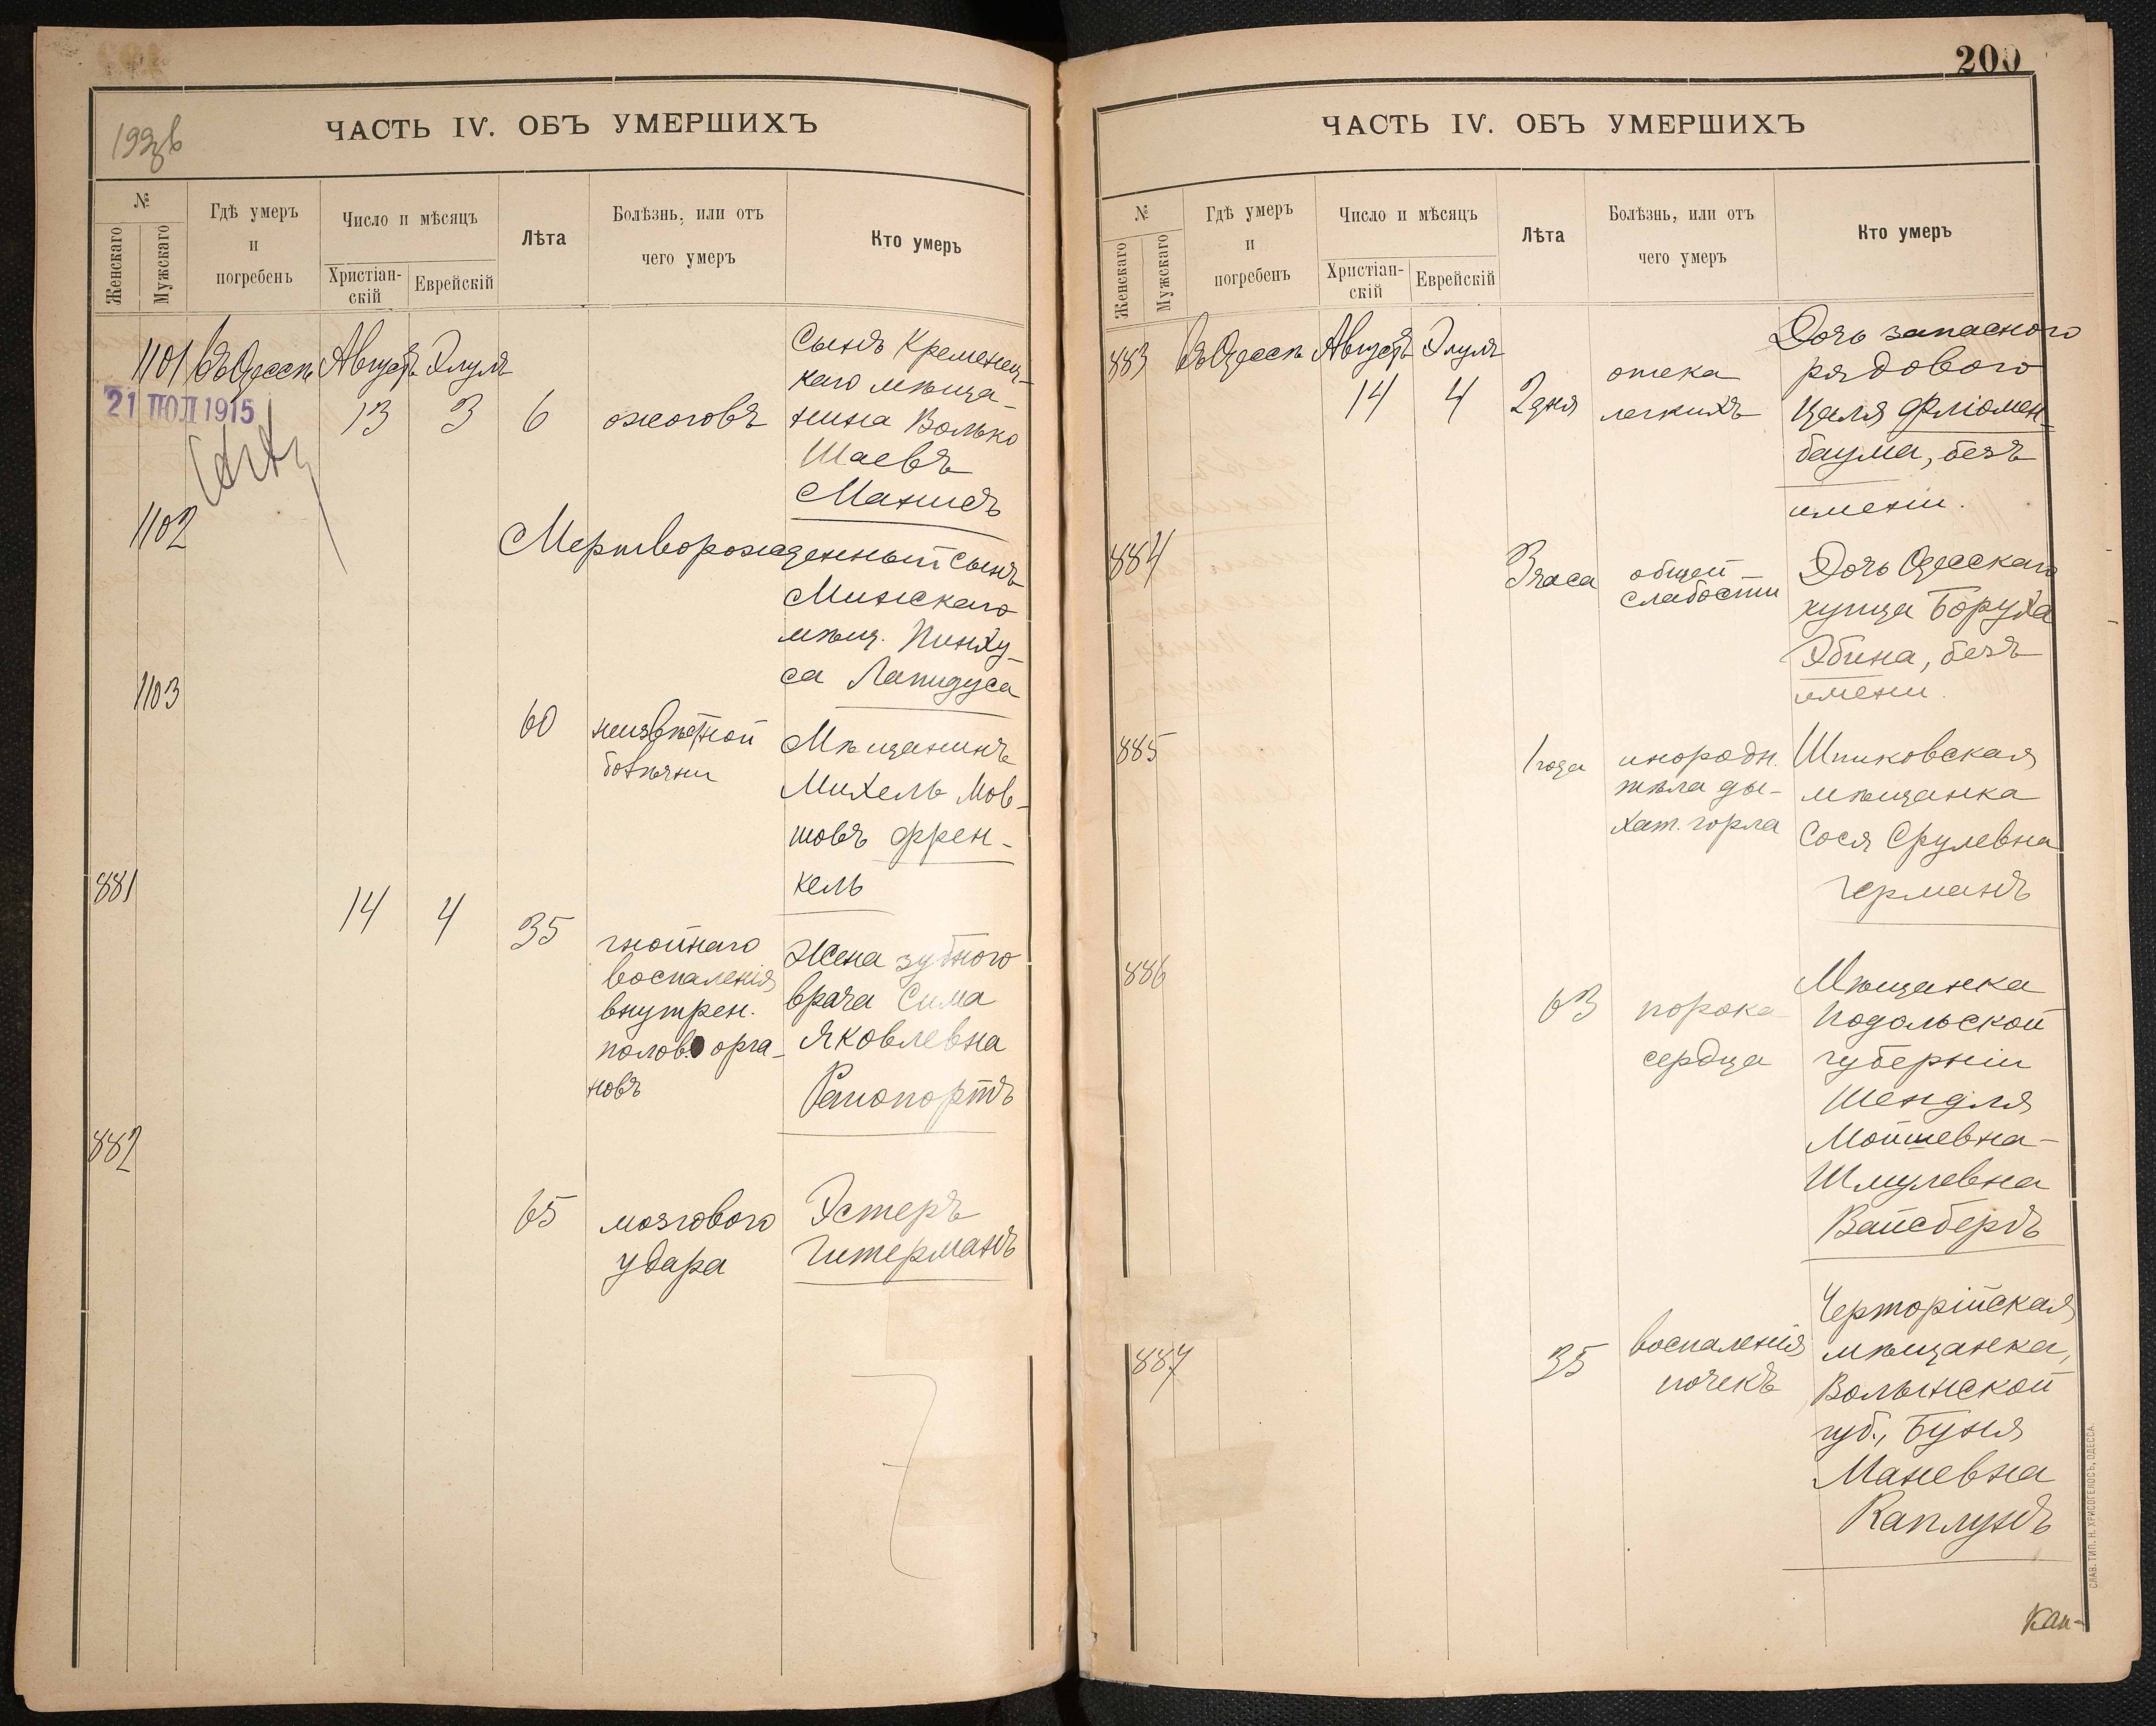 199об
ЧАСТЬ IV. ОБЪ УМЕРШИХЪ
№
Женскаго
Мужскаго
Гдѣ умеръ
и
погребенъ
Число и мѣсяцъ
Христіан-
скій
Еврейскій
Лѣта
Болѣзнь, или отъ
чего умеръ
Кто умеръ
1101 въ Одессѣ Августъ Элулъ
21 ІЮЛ 1915
13 3 6 ожоговъ
Сынъ Кременец-
каго мѣща-
нина Волько
Шаевъ
1102
Мертворожденный сынъ
Минскаго
мѣщ. Пинху-
са Лапидуса
1103
60
неизвѣстной
болѣзни
Мѣщанинъ
Михель Мов-
шовъ Френ-
кель
881
14 4 35
гнойнаго
воспаленія
внутрен.
полов. орга-
новъ
Жена зубного
врача Сима
Яковлевна
Рапопортъ
882
65
мозгового
удара
Эстеръ
Гитерманъ
200
ЧАСТЬ IV. ОБЪ УМЕРШИХЪ
№
Женскаго
Мужскаго
Гдѣ умеръ
и
погребенъ
Число и мѣсяцъ
Христіан-
скій
Еврейскій
Лѣта
Болѣзнь, или отъ
чего умеръ
Кто умеръ
883 въ Одессѣ Августъ Элулъ
14 4 2 дня
отека
легкихъ
Дочь запасного
рядового
Цаля Фліомен-
баума, безъ
имени.
884
3 часа
общей
слабости
Дочь Одесскаго
купца Боруха
Эбина, безъ
имени.
885
1 года
инородн.
тѣла ды-
хат. горла
Шпиковская
мѣщанка
Сося Срулевна
Германъ
886
63
порока
сердца
Мѣщанка
Подольской
губерніи
Шендля
Мойшевна-
Шмулевна
Вайсбергъ
887
35
воспаленія
почекъ
Черторійская
мѣщанка,
Волынской
губ., Буня
Маневна
Каплунъ
Кап-
СЛАВ. ТИП. Н. ХРИСОГЕЛОСЪ, ОДЕССА.